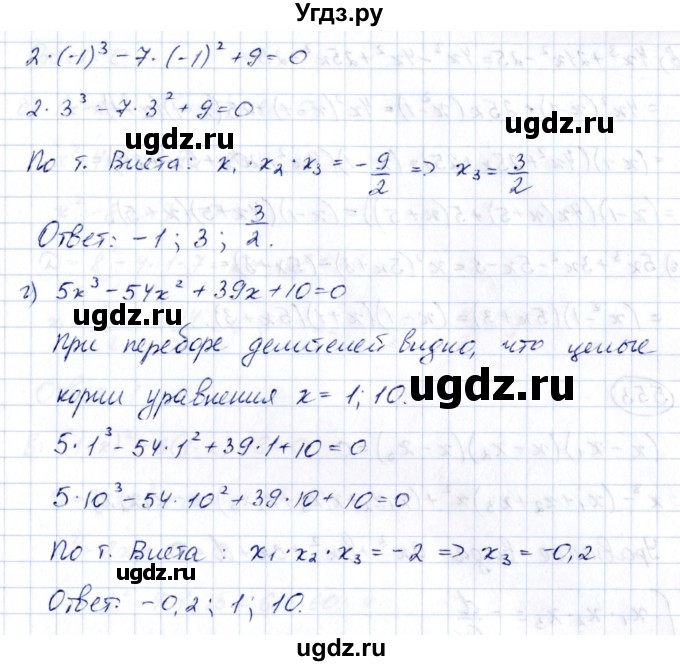 Угдз.ру
2·(-1)³ - 7·(-1)² + 9 = 0
2·3³ - 7·3² + 9 = 0
ugdz.ru ugdz.ru
По т. Виета: x₁·x₂·x₃ = -9/2 => x₃ = 3/2
Ответ: -1; 3; 3/2.
г) 5x³ - 54x² + 39x + 10 = 0
При переборе делителей видно, что целые
корни уравнения x = 1; 10.
ugdz.ru
5·1³ - 54·1² + 39·1 + 10 = 0
5·10³ - 54·10² + 39·10 + 10 = 0
По т. Виета: x₁·x₂·x₃ = -2 => x₃ = -0,2
ugdz.ru ugdz.ru
Ответ: -0,2; 1; 10.